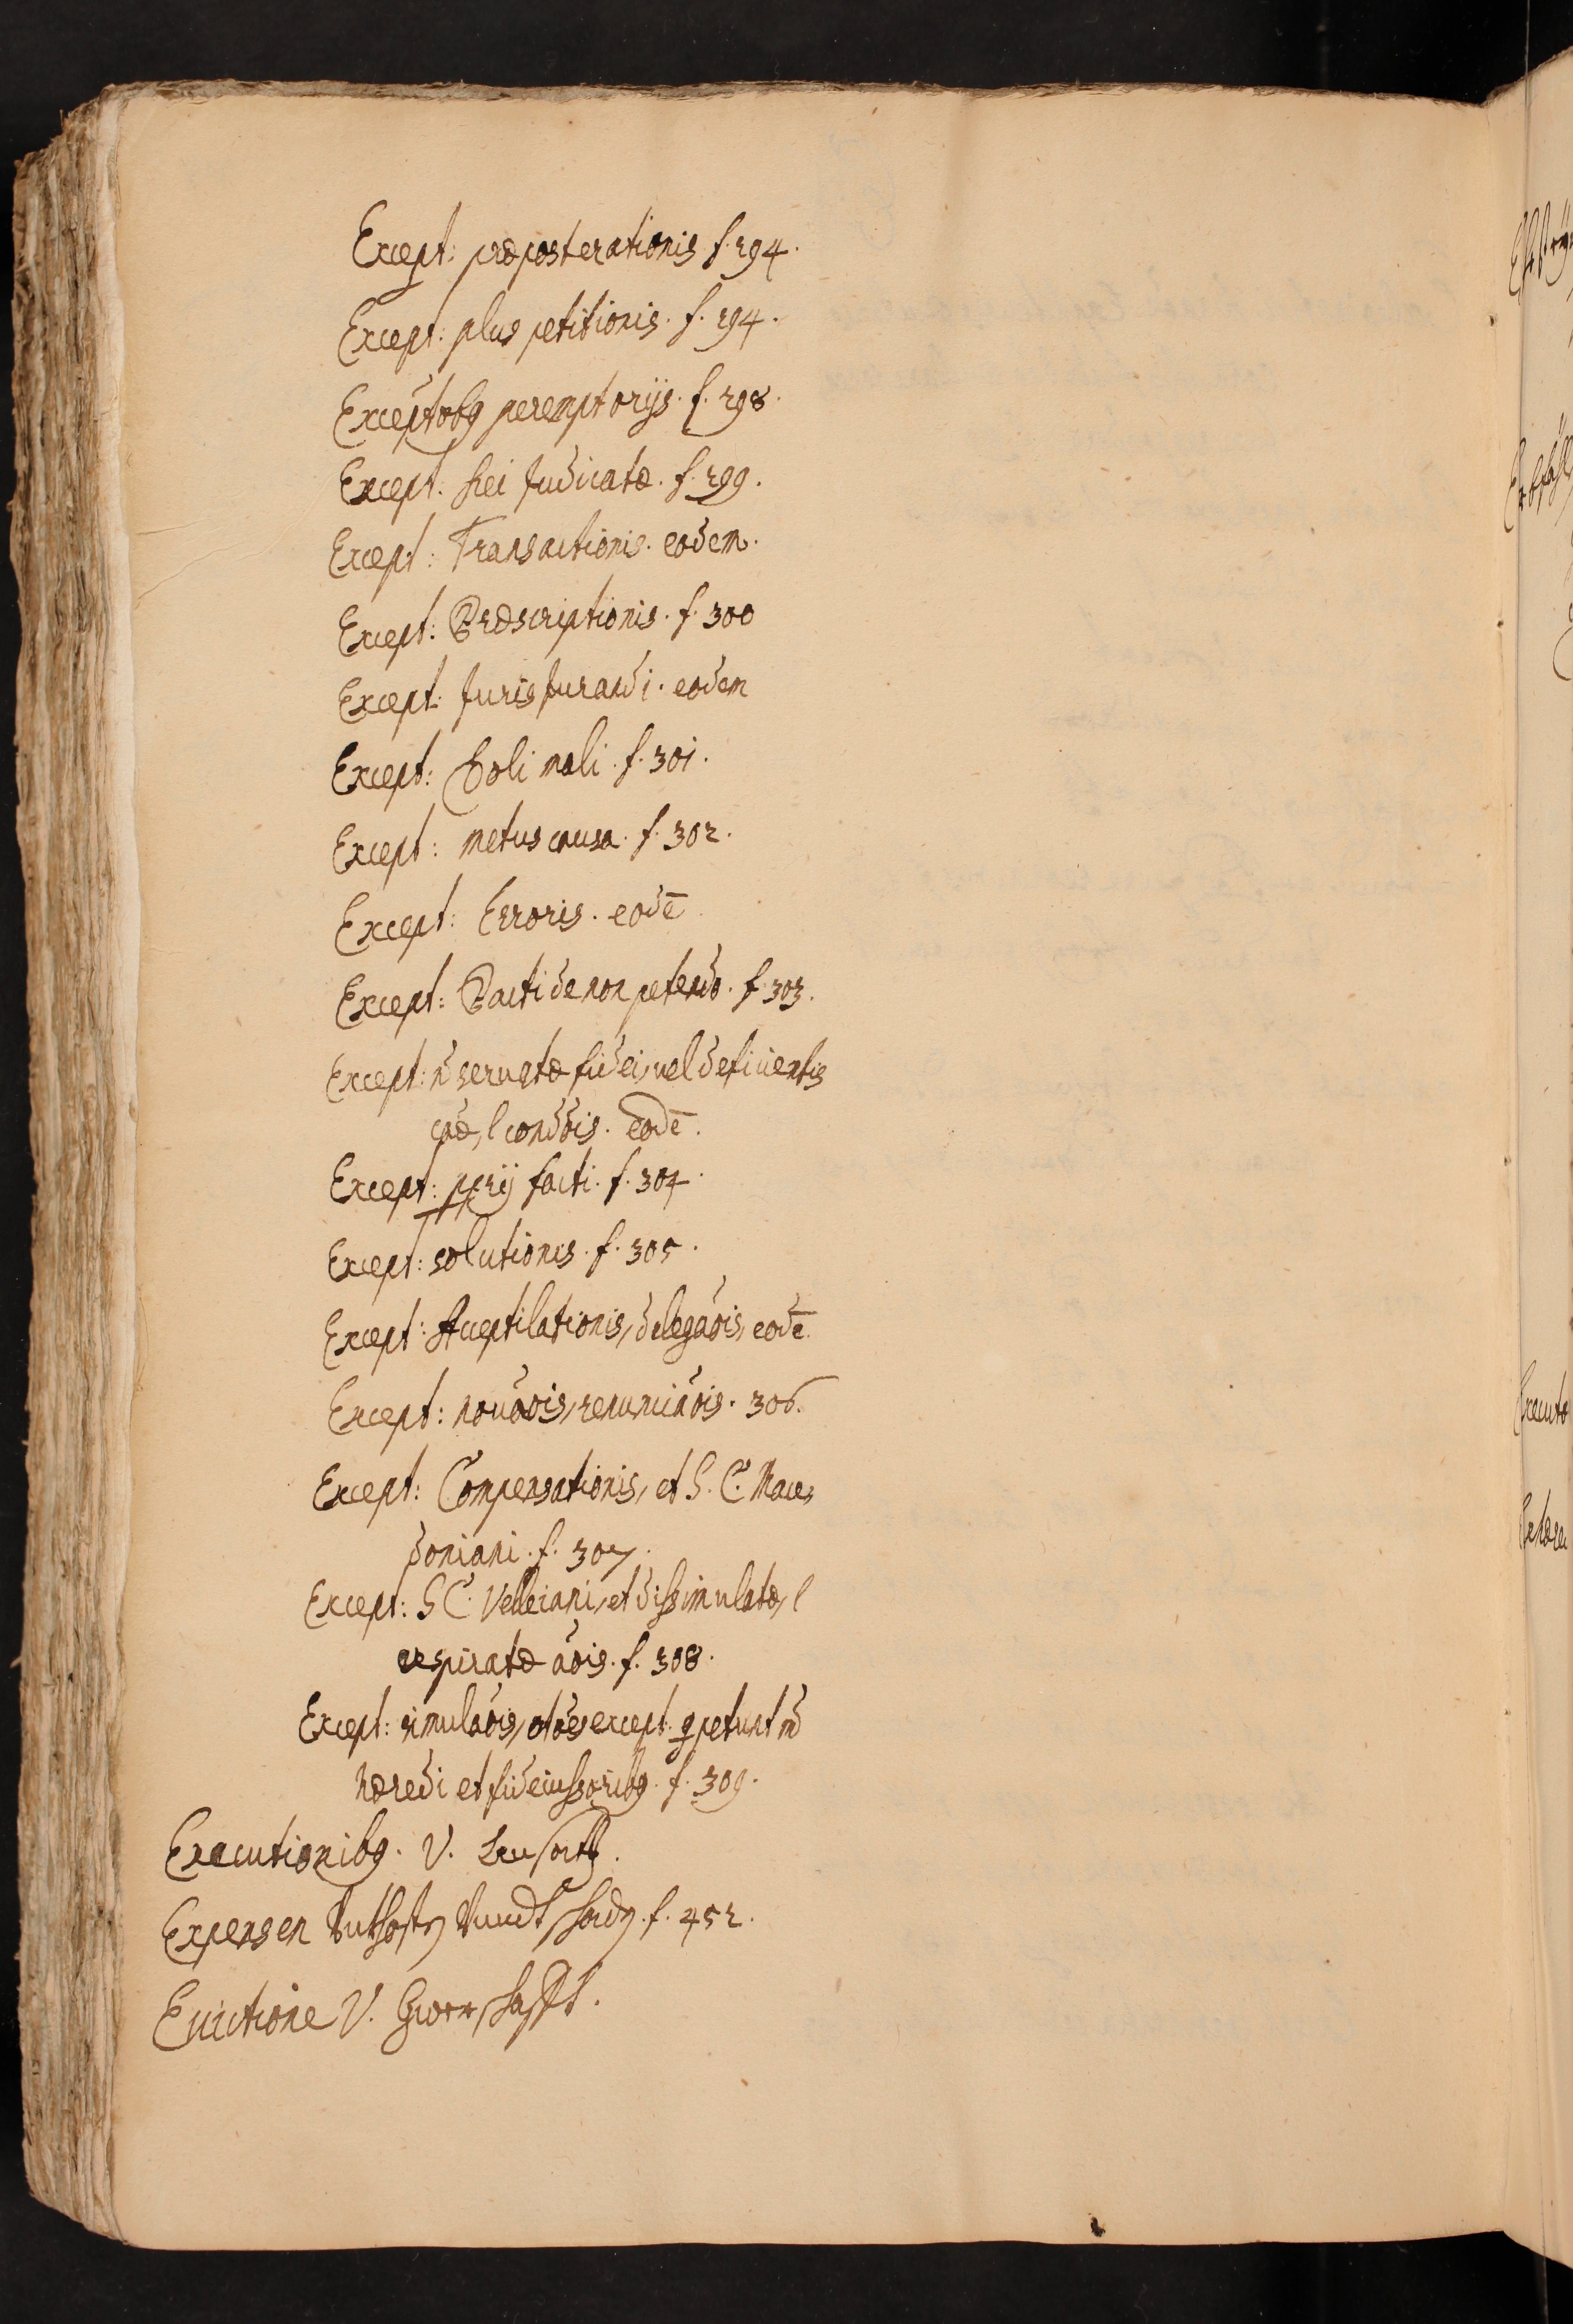 Except: præposterationis f. 294.
Except: plus petitionis. f. 294.
Exceptõbq peremptorijs. f. 298.
Except. Rei Judicatæ. f. 299.
Except: Transactionis. eodem.
Except: Præscriptionis. f. 300
Except: Jurisjurandi. eodem
Except: Doli mali. f. 301.
Except: metus causa. f. 302.
Except: Erroris. eodē
Except: Pacti de non petendo. f. 303.
Except: ñ seruatæ fidei, uel deficientis
cãæ, l condõis. eodē.
Except: pprij facti. f. 304.
Except: solutionis. f. 305.
Except: Acceptilationis, delegãõis, eodē.
Except: nouãõis, renunciãõis. 306.
Except: Compensationis, et S. C. Mace,
doniani. f. 307.
Except: S C. Velleiani, et dissimulatæ, l
respiratæ ãõis. f. 308.
Except: simulãõis, except. petunt
hæredi et fideiussoribq. f. 309.
Executionibq. V.
Expensen f. 452.
Euictione V.
Executo